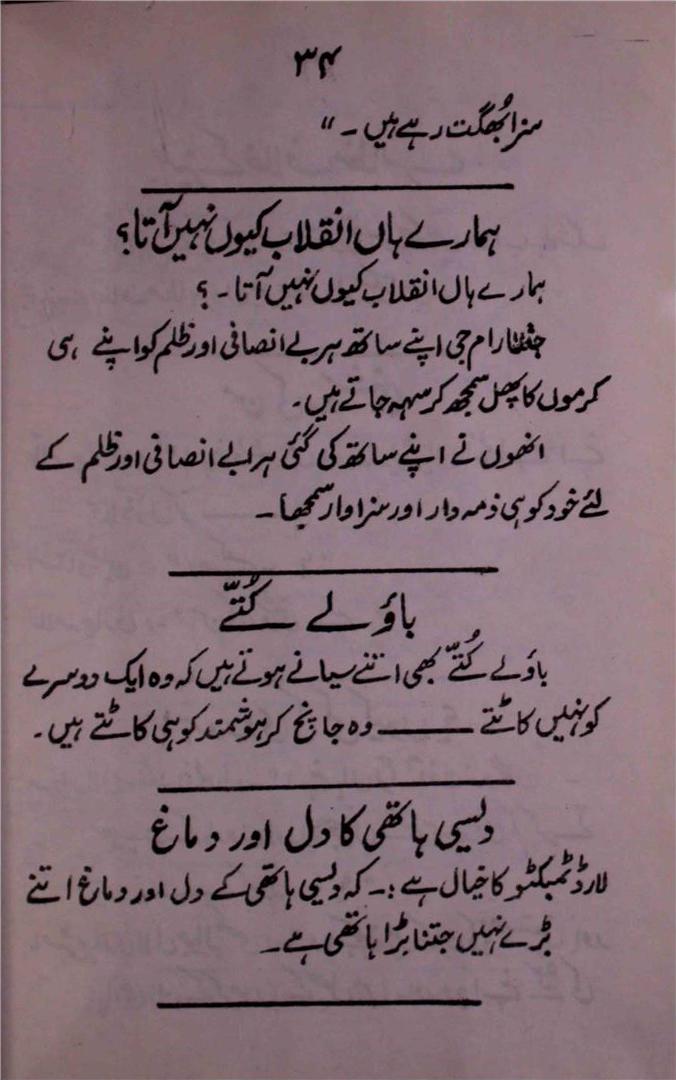 ۳۴
سزا بُھگت رہے ہیں۔"
ہمارے ہاں انقلاب کیوں نہیں آتا؟
ہمارے ہاں انقلاب کیوں نہیں آتا۔؟
رام جی اپنے ساتھ ہر بے انصافی اور ظلم کو اپنے ہی
کرموں کا پھل سمجھ کر سہہ جاتے ہیں۔
انھوں نے اپنے ساتھ کی گئی ہر بے انصافی اور ظلم کے
لئے خود کو ہی ذمہ دار اور سزاوار سمجھا۔
باؤلے کُتّے
باؤلے کُتّے بھی اتنے سیانے ہوتے ہیں کہ وہ ایک دوسرے
کو نہیں کاٹتے ——— وہ جانچ کر ہوشمند کو ہی کاٹتے ہیں۔
دیسی ہاتھی کا دل اور دماغ
لارڈ ٹمبکٹو کا خیال ہے :۔ کہ دیسی ہاتھی کے دل اور دماغ اتنے
بڑے نہیں جتنا بڑا ہاتھی ہے۔